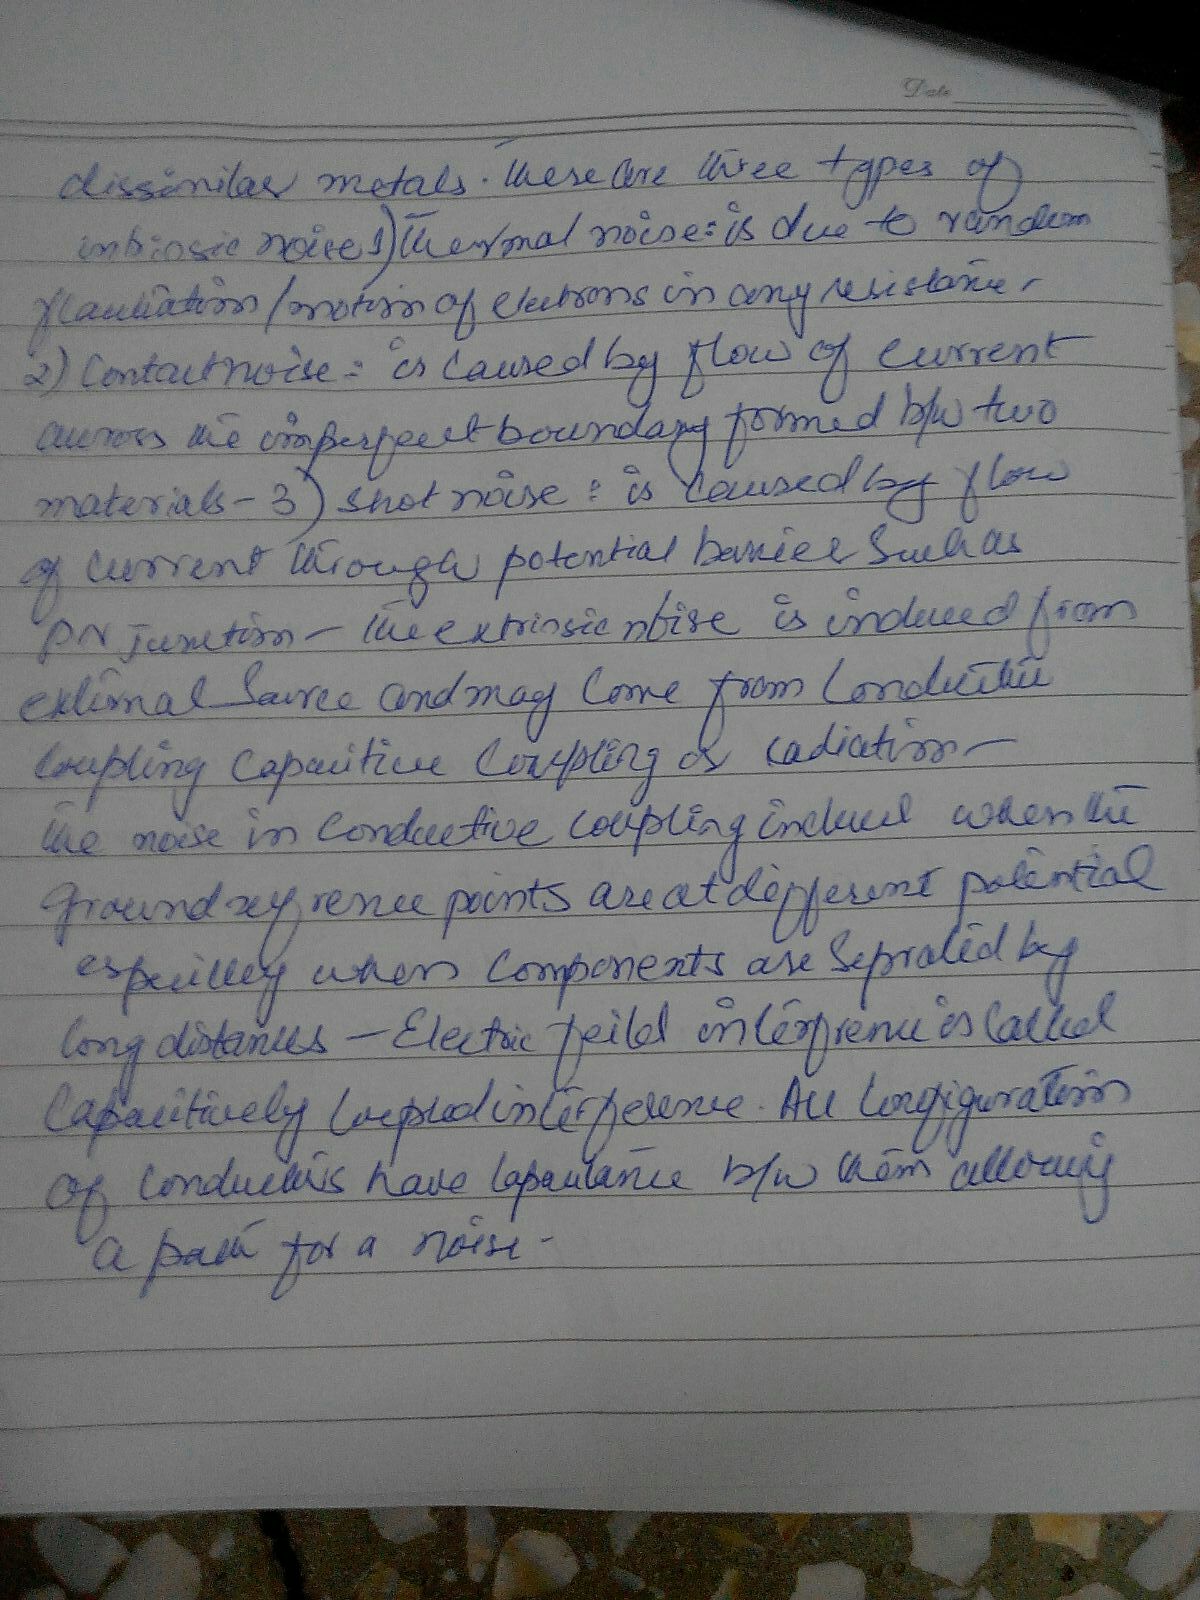 Date
dissimilar metals. There are three types of
intrinsic noise 1) Thermal noise: is due to random
flactuation/motion of electrons in any resistance.
2) Contact noise: is caused by flow of current
across the imperfect boundary formed b/w two
materials - 3) Shot noise: is caused by flow
of current through potential barrier Such as
PN junction - The extrinsic noise is induced from
external Source and may come from Conductive
coupling Capacitive Coupling or radiation -
The noise in Conductive coupling induced when the
ground refrence points are at different potential
espcially when components are Seprated by
long distances - Electric feild interfrence is called
Capacitively Coupled interference. All Configuration
of Conductors have Capacitance b/w them allowing
a path for a noise -